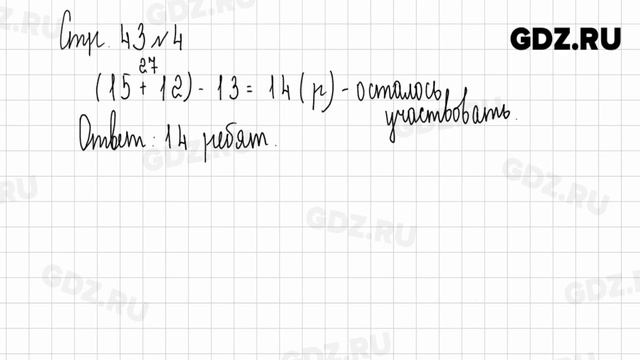 Стр. 43 №4
GDZ.RU
27
(15 + 12) - 13 = 14 (р) - осталось
участвовать.
Ответ: 14 ребят.
GDZ.RU
GDZ.RU
GDZ.RU
GDZ.RU
GDZ.RU
GDZ.RU
GDZ.RU
GDZ.RU